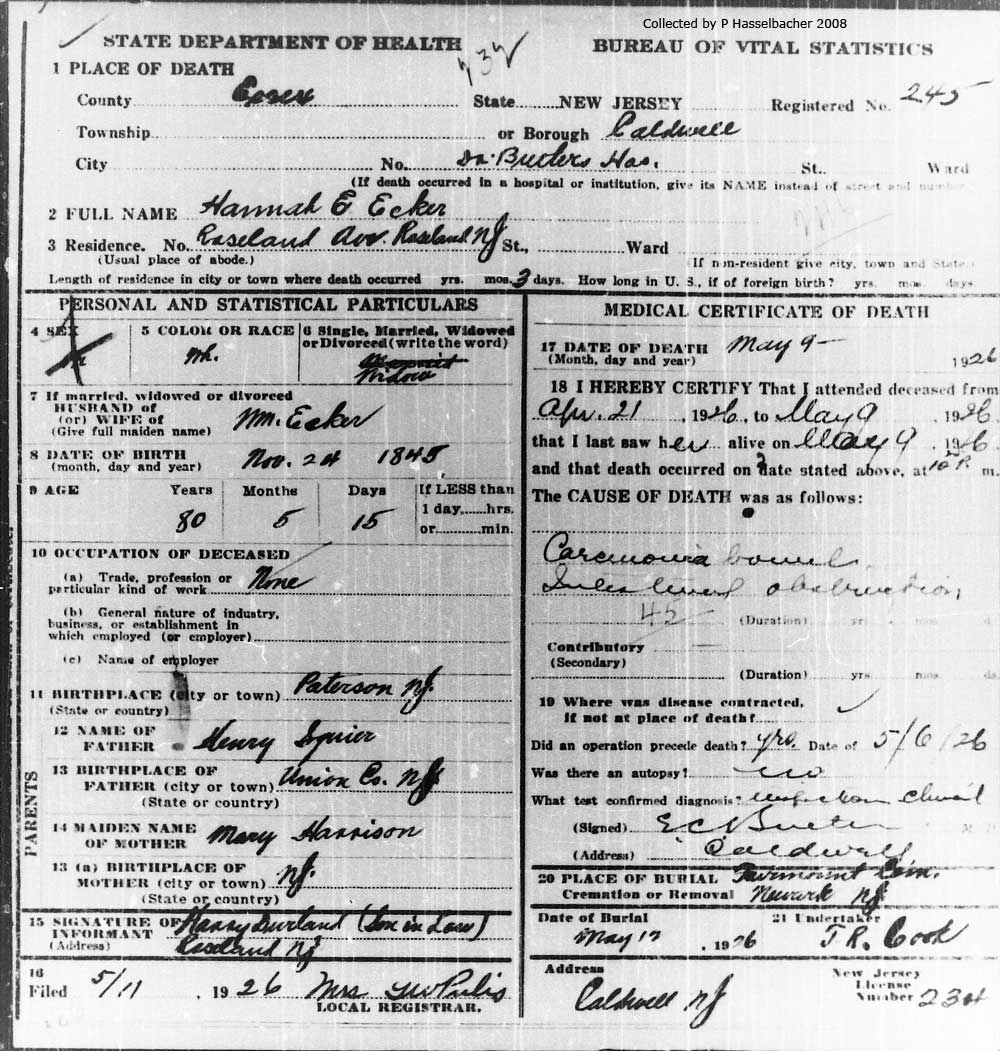 Collected by P Hasselbacher 2008
STATE DEPARTMENT OF HEALTH
BUREAU OF VITAL STATISTICS
1 PLACE OF DEATH
County Essex State NEW JERSEY Registered No. 245
Township or Borough Caldwell
City No. Dr. Butlers Hos. St. Ward
(If death occurred in a hospital or institution, give its NAME instead of street and number
2 FULL NAME Hannah E Ecker
3 Residence. No. Roseland Ave. Roseland NJ St., Ward
(Usual place of abode.) (If non-resident give city, town and State.)
Length of residence in city or town where death occurred yrs. mos. 3 days. How long in U. S., if of foreign birth? yrs. mos. days
PERSONAL AND STATISTICAL PARTICULARS
4 SEX
5 COLOR OR RACE Wh.
6 Single, Married, Widowed or Divorced (write the word)
Widow
7 If married, widowed or divorced
HUSBAND of
(or) WIFE of Wm. Ecker
(Give full maiden name)
8 DATE OF BIRTH Nov. 24 1845
(month, day and year)
9 AGE Years Months Days If LESS than
80 5 15 1 day, hrs.
or min.
10 OCCUPATION OF DECEASED
(a) Trade, profession or
particular kind of work None
(b) General nature of industry,
business, or establishment in
which employed (or employer)
(c) Name of employer
11 BIRTHPLACE (city or town) Paterson NJ.
(State or country)
12 NAME OF
FATHER Henry Spier
13 BIRTHPLACE OF
FATHER (city or town) Union Co. NJ
(State or country)
PARENTS
14 MAIDEN NAME
OF MOTHER Mary Harrison
13 (a) BIRTHPLACE OF
MOTHER (city or town) NJ.
(State or country)
15 SIGNATURE OF
INFORMANT Harry Durland (Son in Law)
(Address) Roseland NJ
16
Filed 5/11, 1926 Mrs
LOCAL REGISTRAR.
MEDICAL CERTIFICATE OF DEATH
17 DATE OF DEATH May 9
(Month, day and year) 1926
18 I HEREBY CERTIFY That I attended deceased from
Apr. 21, 1926, to May 9, 1926
that I last saw her alive on May 9, 1926
and that death occurred on date stated above, at 10 P. m.
The CAUSE OF DEATH was as follows:
Carcinoma bowel
Intestinal obstruction
45 (Duration) yrs mos ds
Contributory
(Secondary)
(Duration) yrs mos. ds.
19 Where was disease contracted,
if not at place of death?
Did an operation precede death? yes. Date of 5/6/26
Was there an autopsy? no
What test confirmed diagnosis?
(Signed) E C Butler
(Address) Caldwell
20 PLACE OF BURIAL Fairmount Cem.
Cremation or Removal Newark NJ
Date of Burial 21 Undertaker
May 12, 1926 J R. Cook
Address
Caldwell NJ
New Jersey
License
Number 234